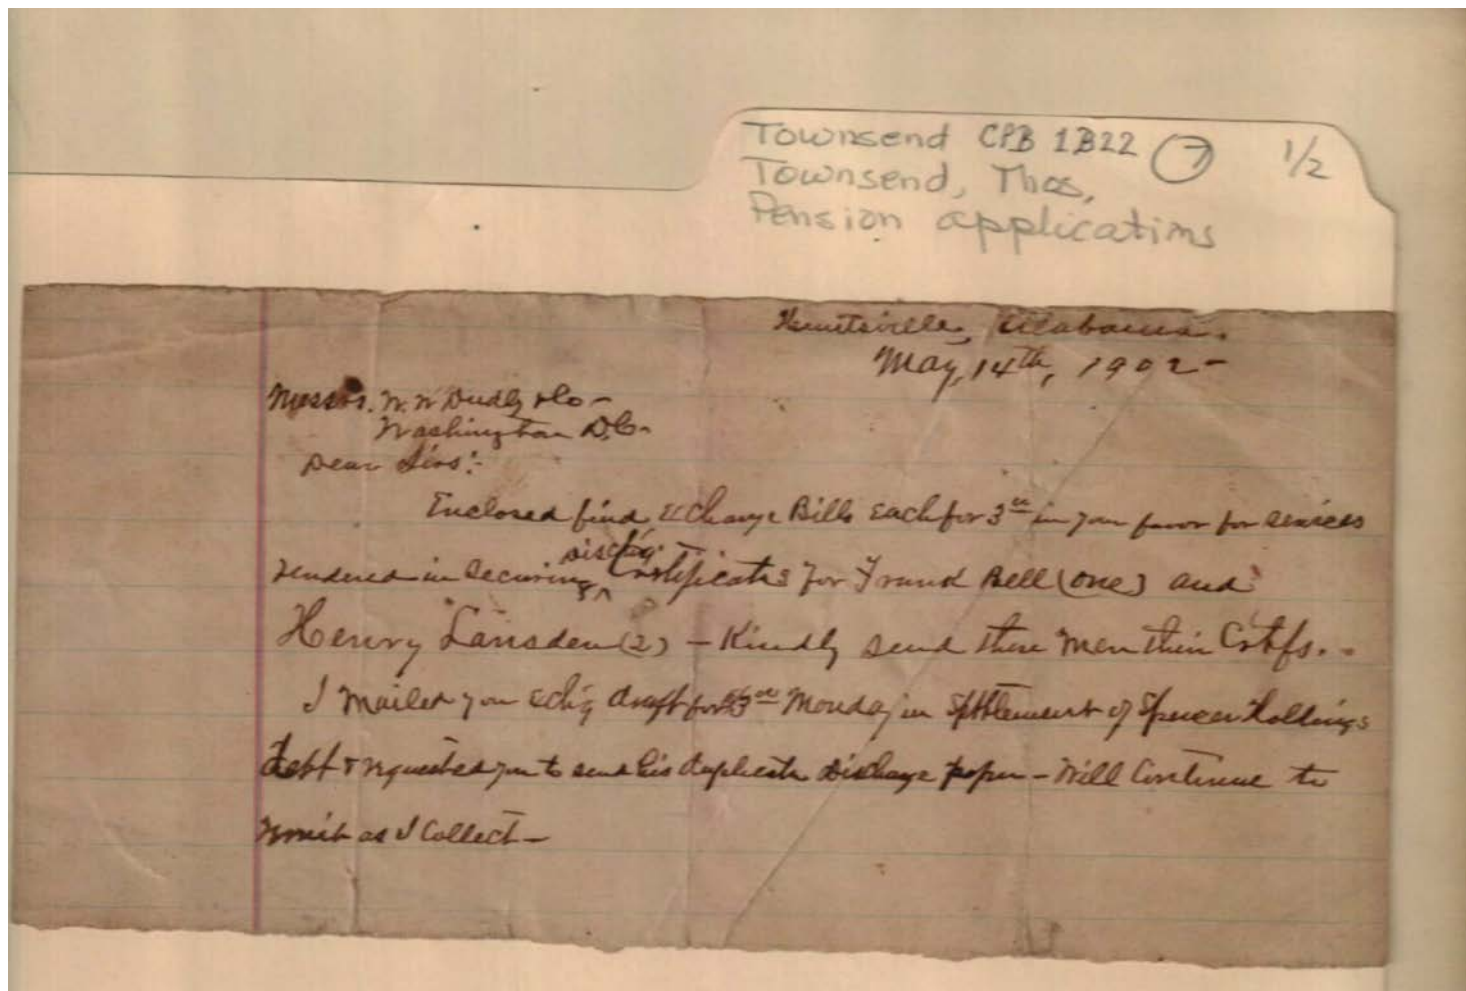 Townsend CPB 1B22 7 1/2
Townsend, Thos,
Pension applications
Huntsville, Alabama.
May, 14th, 1902-
Messrs. W. W Dudly & Co -
Washington D.C-
Dear Sirs:-
Enclosed find Exchange Bills each for 3 in your favor for services
dischg.
rendered in securing Certificates for Frank Bell (one) and
Henry Lansden (2) - Kindly send these men their
I mailed you draft for 3 Monday in settlement of Spencer Hollings
debt & requested you to send his duplicate discharge paper - Will Continue to
remit as I Collect -